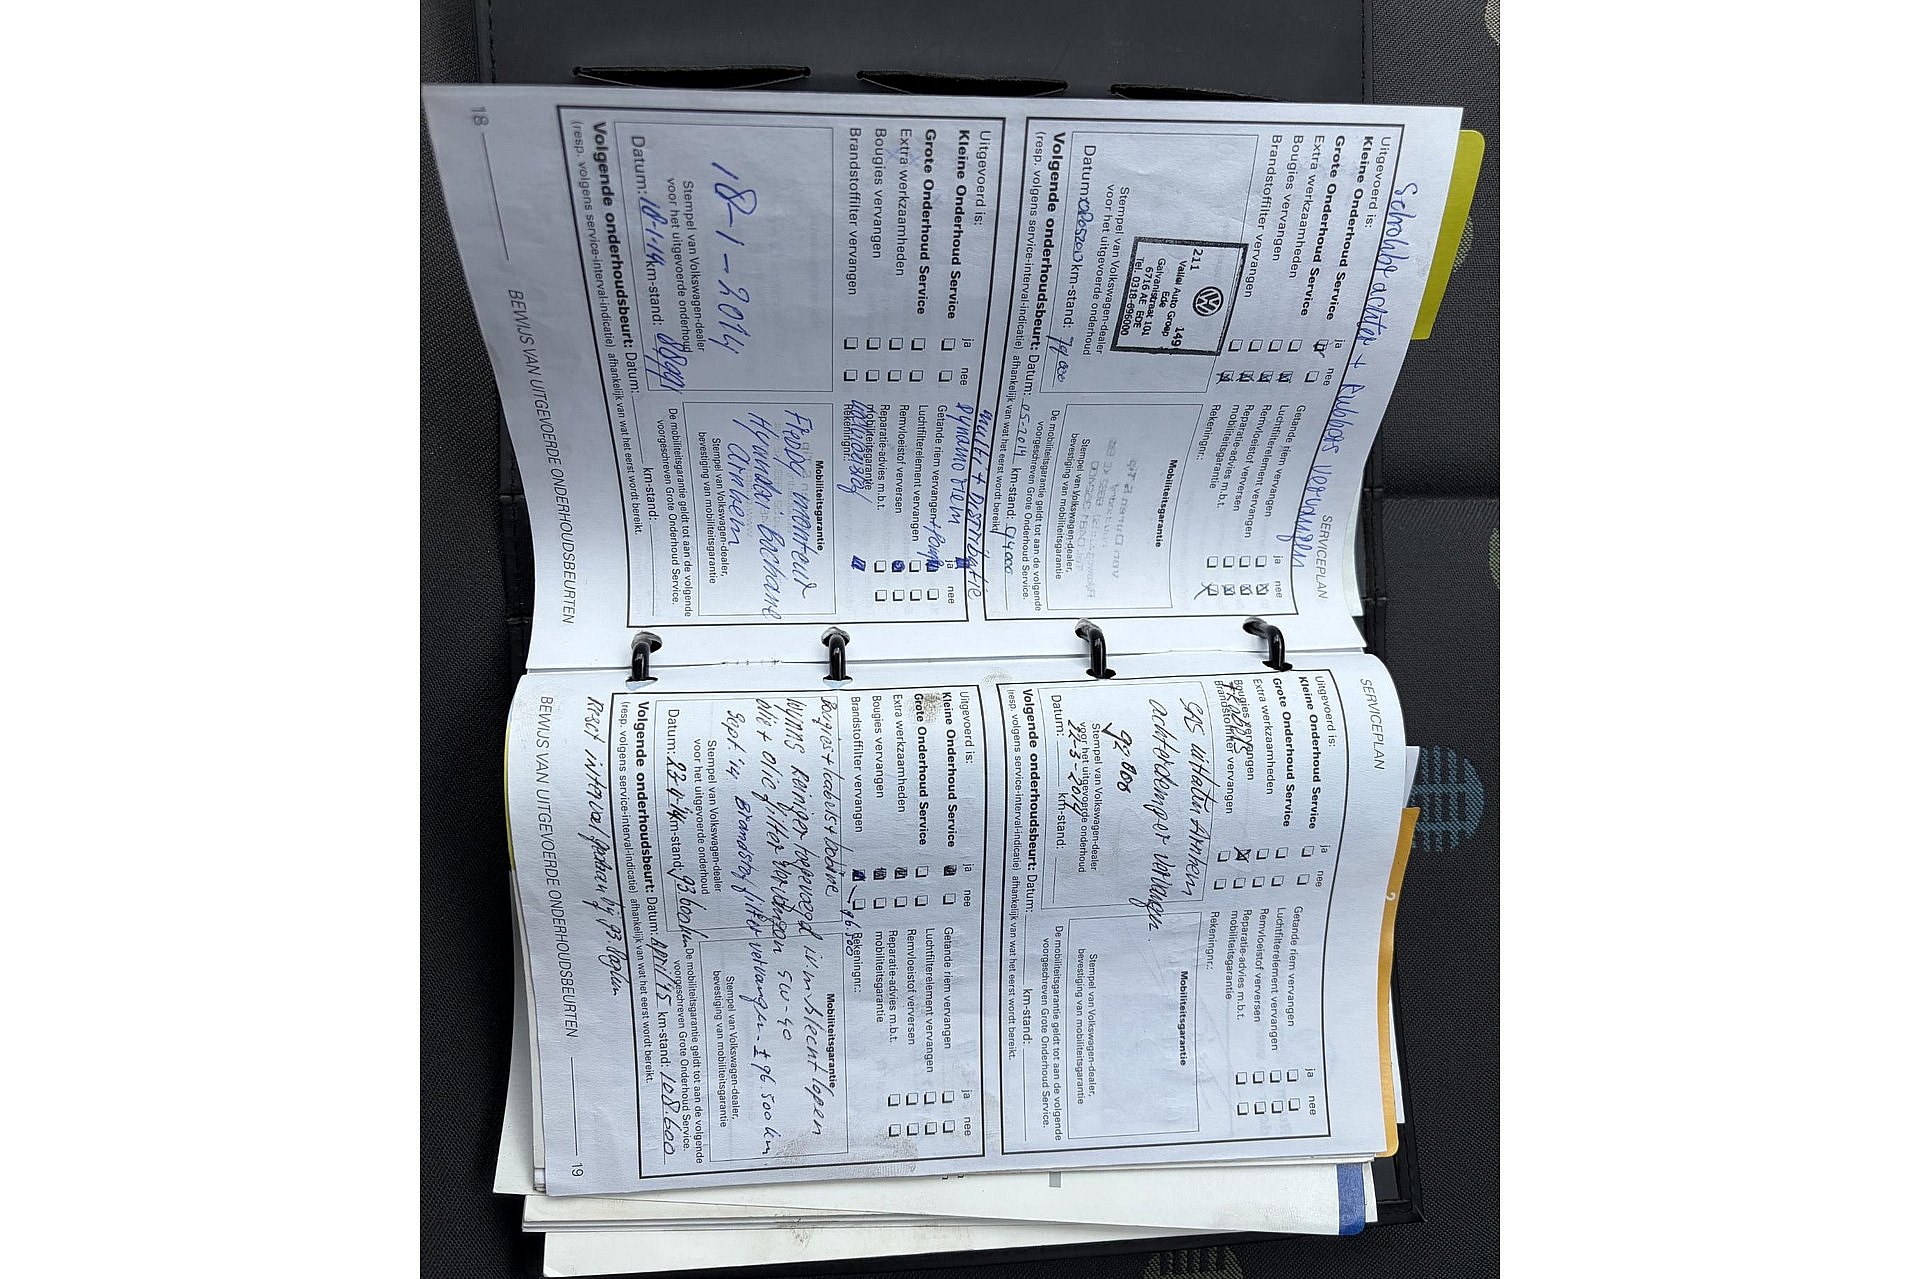 Schokbr achter + Rubbers vervangen
SERVICEPLAN
Uitgevoerd is:
ja nee
Kleine Onderhoud Service
Grote Onderhoud Service
Extra werkzaamheden
Bougies vervangen
Brandstoffilter vervangen
ja nee
Getande riem vervangen
Luchtfilterelement vervangen
Remvloeistof verversen
Reparatie-advies m.b.t.
mobiliteitsgarantie
Rekeningnr.:
211 149
Vallei Auto Groep
Ede
Galvanistraat 101
6716 AE EDE
Tel. 0318-696000
Stempel van Volkswagen-dealer
voor het uitgevoerde onderhoud
Datum: km-stand: 79.000
Mobiliteitsgarantie
Stempel van Volkswagen-dealer,
bevestiging van mobiliteitsgarantie
De mobiliteitsgarantie geldt tot aan de volgende
voorgeschreven Grote Onderhoud Service.
Volgende onderhoudsbeurt: Datum: 05-2014 km-stand: 94000
(resp. volgens service-interval-indicatie) afhankelijk van wat het eerst wordt bereikt.
multi + Distributie
Dynamo riem
Uitgevoerd is:
ja nee
Kleine Onderhoud Service
Grote Onderhoud Service
Extra werkzaamheden
Bougies vervangen
Brandstoffilter vervangen
ja nee
Getande riem vervangen + Pomp
Luchtfilterelement vervangen
Remvloeistof verversen
Reparatie-advies m.b.t.
mobiliteitsgarantie
Rekeningnr.:
18-1-2014
Stempel van Volkswagen-dealer
voor het uitgevoerde onderhoud
Datum: 18-1-14 km-stand:
Mobiliteitsgarantie
Arnhem
Stempel van Volkswagen-dealer,
bevestiging van mobiliteitsgarantie
De mobiliteitsgarantie geldt tot aan de volgende
voorgeschreven Grote Onderhoud Service.
Volgende onderhoudsbeurt: Datum: km-stand:
(resp. volgens service-interval-indicatie) afhankelijk van wat het eerst wordt bereikt.
18 BEWIJS VAN UITGEVOERDE ONDERHOUDSBEURTEN
SERVICEPLAN
Uitgevoerd is:
ja nee
Kleine Onderhoud Service
Grote Onderhoud Service
Extra werkzaamheden
Bougies vervangen
Brandstoffilter vervangen
ja nee
Getande riem vervangen
Luchtfilterelement vervangen
Remvloeistof verversen
Reparatie-advies m.b.t.
mobiliteitsgarantie
Rekeningnr.:
SAS uitlaten Arnhem
achterdemper vervangen.
92.800
Stempel van Volkswagen-dealer
voor het uitgevoerde onderhoud
22-3-2014
Datum: km-stand:
Mobiliteitsgarantie
Stempel van Volkswagen-dealer,
bevestiging van mobiliteitsgarantie
De mobiliteitsgarantie geldt tot aan de volgende
voorgeschreven Grote Onderhoud Service.
Volgende onderhoudsbeurt: Datum: km-stand:
(resp. volgens service-interval-indicatie) afhankelijk van wat het eerst wordt bereikt.
Uitgevoerd is:
ja nee
Kleine Onderhoud Service
Grote Onderhoud Service
Extra werkzaamheden
Bougies vervangen
Brandstoffilter vervangen
96.500
ja nee
Getande riem vervangen
Luchtfilterelement vervangen
Remvloeistof verversen
Reparatie-advies m.b.t.
mobiliteitsgarantie
Rekeningnr.:
Bougies + kabels + bobine
Wynns Reiniger toegevoegd ivm slecht lopen
olie + olie filter vervangen 5W-40
Sept. 14 Brandstof filter vervangen ± 96.500 km
Stempel van Volkswagen-dealer
voor het uitgevoerde onderhoud
Datum: 23-4-14 km-stand: 93.600 km
Mobiliteitsgarantie
Stempel van Volkswagen-dealer,
bevestiging van mobiliteitsgarantie
De mobiliteitsgarantie geldt tot aan de volgende
voorgeschreven Grote Onderhoud Service.
Volgende onderhoudsbeurt: Datum: April 15 km-stand: 108.600
(resp. volgens service-interval-indicatie) afhankelijk van wat het eerst wordt bereikt.
Reset interval gedaan bij
BEWIJS VAN UITGEVOERDE ONDERHOUDSBEURTEN 19